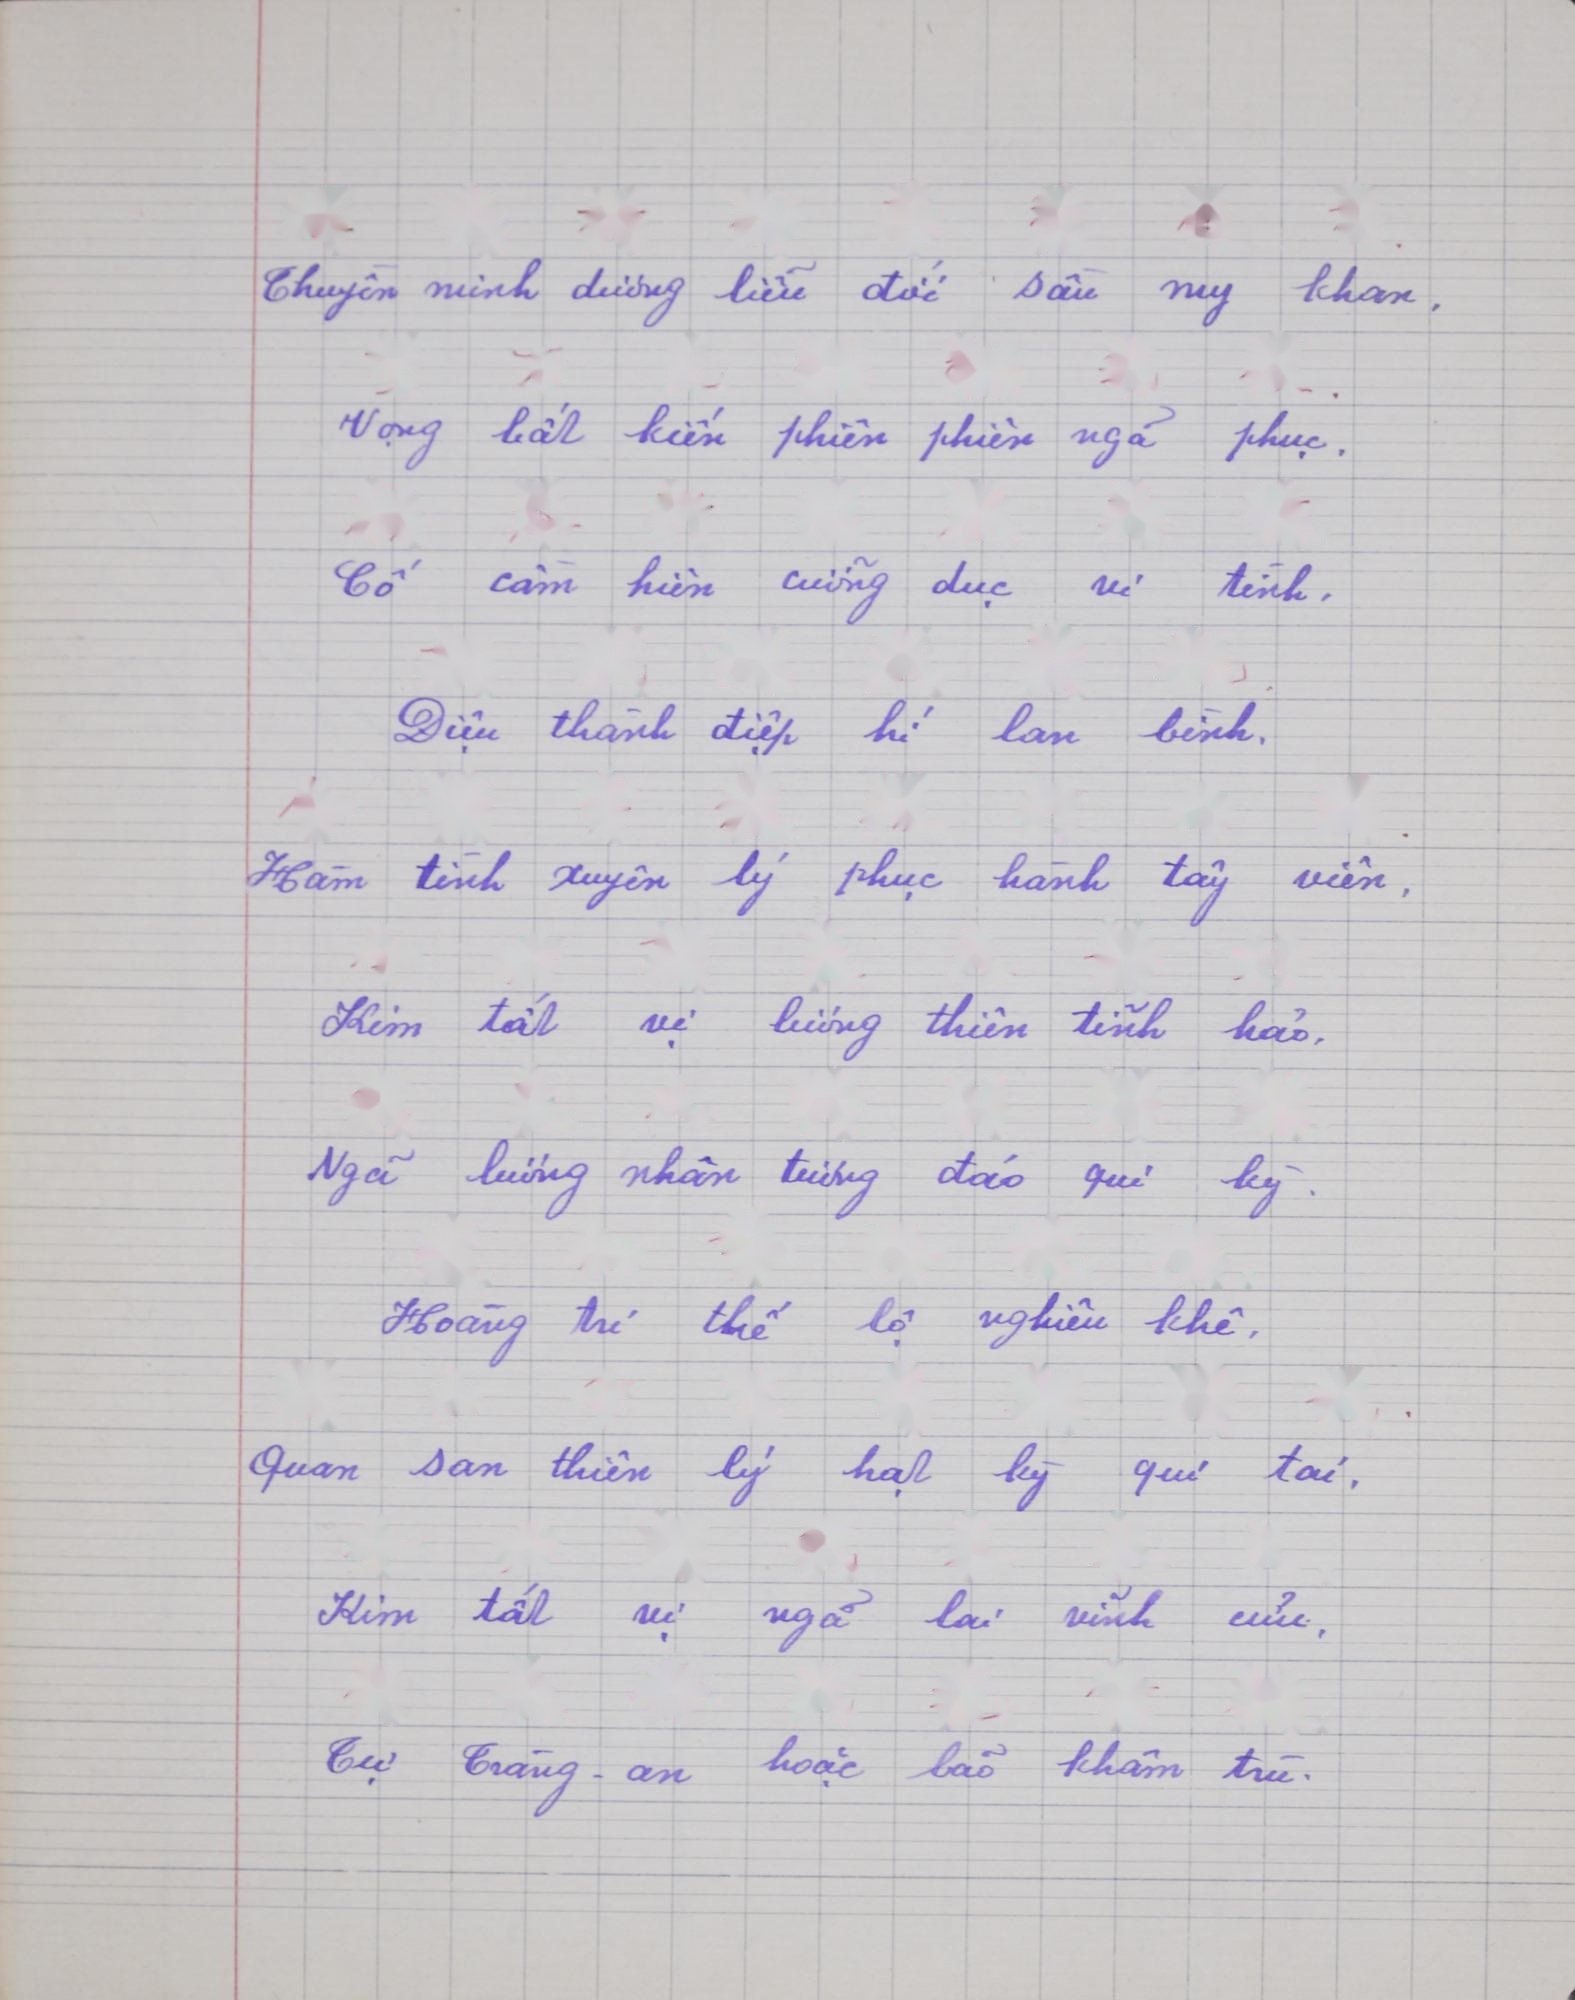 Thuyền minh dương liễu đối sầu my khan.
Vọng bất kiến phiên phiên ngã phục.
Cố cầm hiên cưỡng dục vi tình.
Diệu thành điệp hí lan bình.
Hàm tình xuyên lý phục hành tây viên.
Kim tất vị lương thiên tĩnh hảo.
Ngã lương nhân tương đáo qui kỳ.
Hoàng trí thế lộ nghiêu khê.
Quan san thiên lý hạt kỳ qui tai.
Kim tất vị ngã lai vĩnh cửu.
Tự Tràng - an hoặc bão khâm trù.